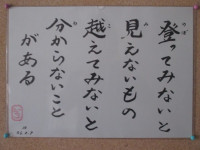 登ってみないと
見えないもの
越えてみないと
分からないこと
がある